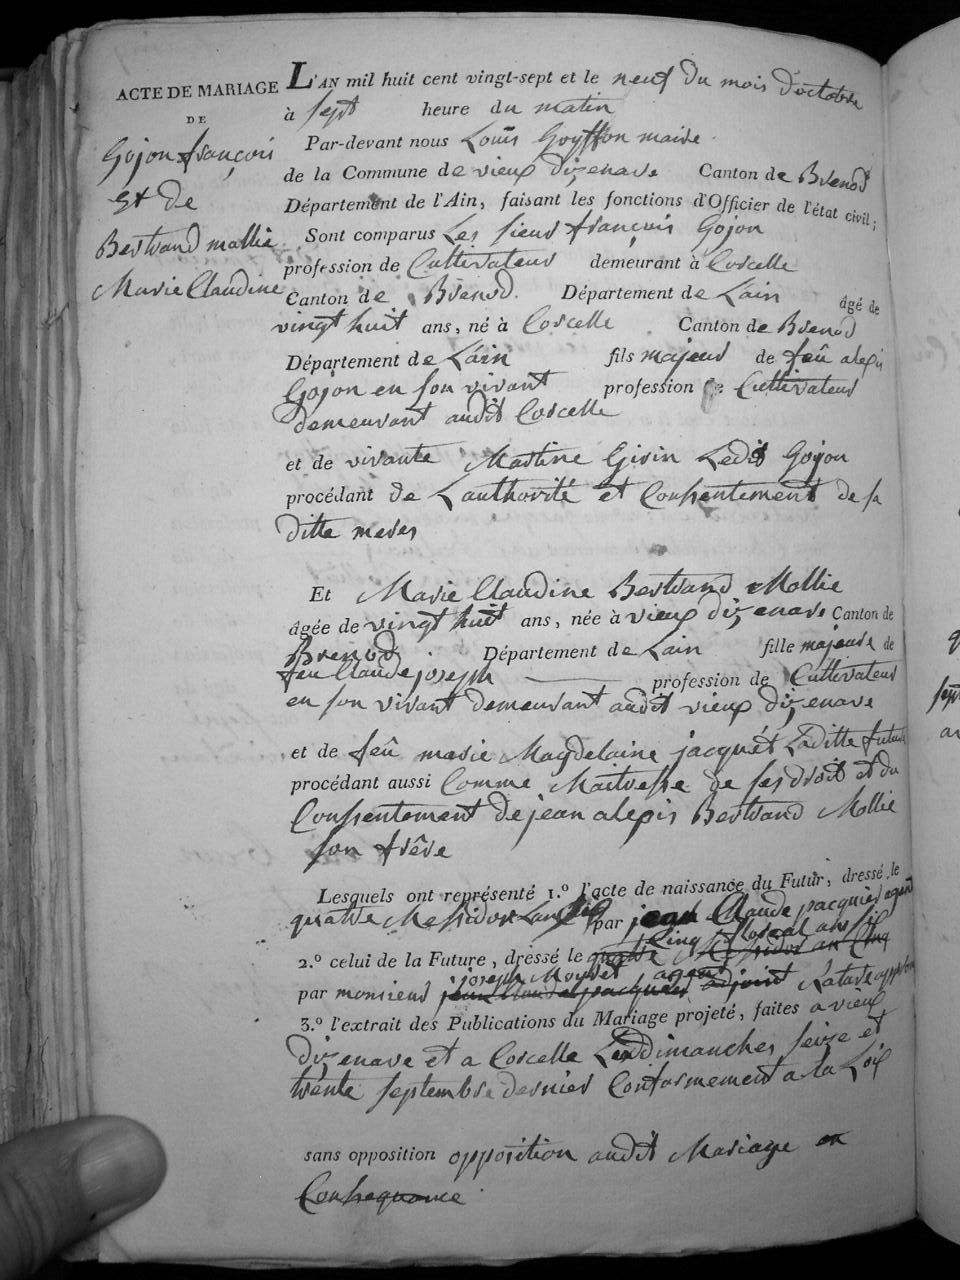 ACTE DE MARIAGE
DE
Gojon françois
Et de
Bertrand mollie
Marie Claudine
L'AN mil huit cent vingt-sept et le neuf du mois d'octobre
à sept heure du matin
Par-devant nous Louis Goyffon maire
de la Commune de vieux dizenave Canton de Brenod
Département de l'Ain, faisant les fonctions d'Officier de l'état civil;
Sont comparus Les sieur françois Gojon
profession de Cultivateur demeurant à Corcelle
Canton de Brenod. Département de L'ain âgé de
vingt huit ans, né à Corcelle Canton de Brenod
Département de L'ain fils majeur de feû alexis
Gojon en son vivant profession de Cultivateur
demeurant audit Corcelle
et de vivante Martine Girin Ledit Gojon
procédant de L'authorité et Consentement de sa
ditte merer
Et Marie Claudine Bertrand Mollie
âgée de vingt huit ans, née à vieux dizenave Canton de
Brenod Département de Lain fille majeure de
feu Claude joseph profession de Cultivateur
en son vivant demeurant audit vieux dizenave
et de feû marie Magdelaine jacquét Laditte future
procédant aussi Comme Maitresse de ses droit et du
Consentement de jean alexis Bertrand Mollie
son frêre
Lesquels ont représenté 1.° l'acte de naissance du Futur, dressé le
quatre Messidor Lan par jean Claude jacquier agent
Cinq floreal an six
2.° celui de la Future, dressé le quatre Messidor an Cinq
joseph Mouret agent
par monsieur jean Claude jacquier adjoint
3.° l'extrait des Publications du Mariage projeté, faites a vieux
dizenave et a Corcelle Les dimanches seize et
trente septembre dernier Conformement a la Loix
sans opposition opposition audit Mariage en
Consequance